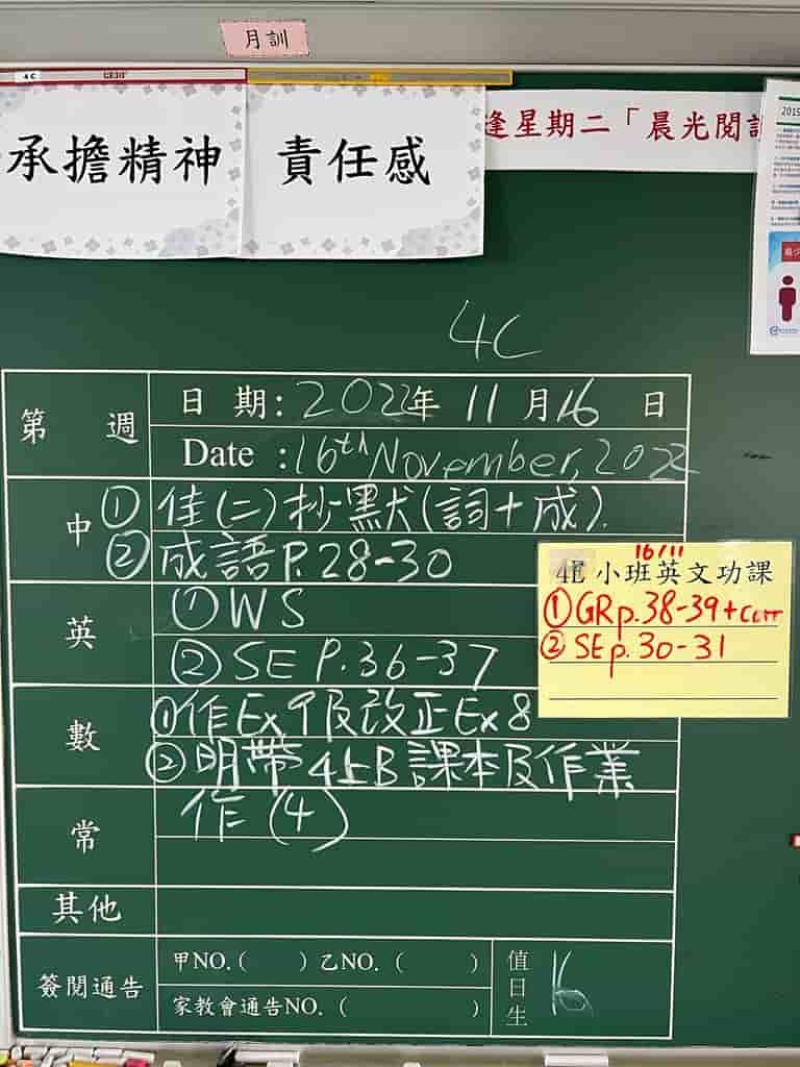 月訓
4C
承擔精神
責任感
逢星期二「晨光閱
2015
4C
第 週
日 期: 2022年 11 月 16 日
Date : 16th November, 2022
中
① 佳(二)抄默(詞+成).
② 成語P.28-30
英
① WS
② SE P.36-37
16/11
4E 小班英文功課
① GRp.38-39+corr
② SEp.30-31
數
① 作Ex9及改正Ex8
② 明帶4上B課本及作業
常
作(4)
其他
簽閱通告
甲NO.( ) 乙NO. ( )
家教會通告NO. ( )
值日生 16